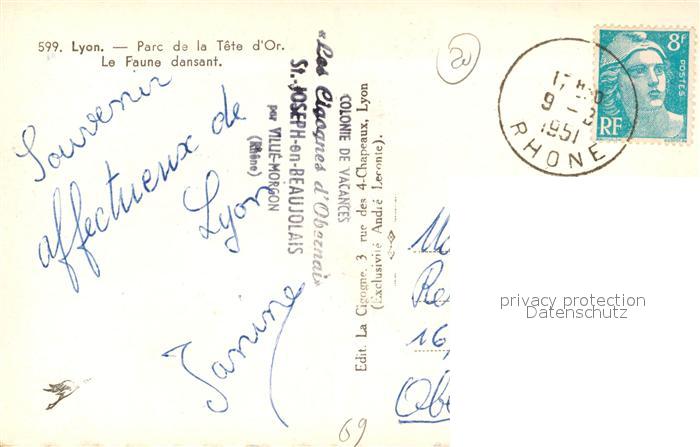 599. Lyon. — Parc de la Tête d'Or.
Le Faune dansant.
Souvenir
affectueux de
Lyon
Janine
"Les Cigognes d'Obernai"
COLONIE DE VACANCES
St-JOSEPH-en-BEAUJOLAIS
par VILLIÉ-MORGON
(Rhône)
Edit. La Cigogne, 3, rue des 4-Chapeaux, Lyon
(Exclusivité André Leconte).
8F
POSTES
RF
9 - 2
1951
RHONE
16,
Obe
privacy protection
Datenschutz
69